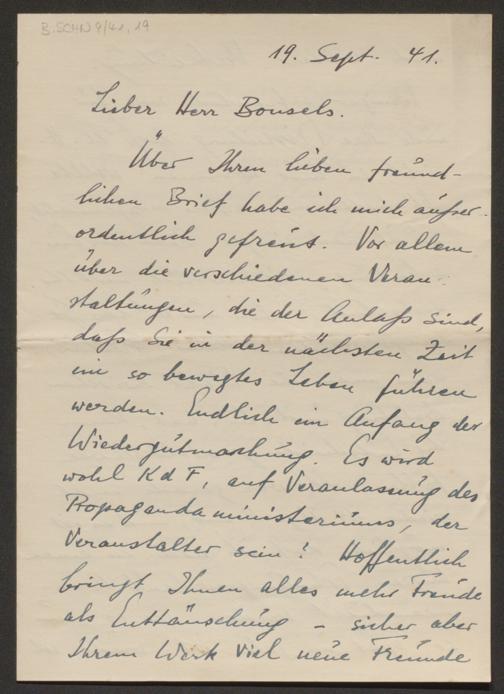 B.SCHN 9/41, 19
19. Sept. 41.
Lieber Herr Bonsels.
Über Ihren lieben freund-
lichen Brief habe ich mich ausser-
ordentlich gefreut. Vor allem
über die verschiedenen Veran-
staltungen, die der Anlaß sind,
daß Sie in der nächsten Zeit
ein so bewegtes Leben führen
werden. Endlich ein Anfang der
Wiedergutmachung. Es wird
wohl KdF, auf Veranlassung des
Propagandaministeriums, der
Veranstalter sein! Hoffentlich
bringt Ihnen alles mehr Freude
als Enttäuschung – sicher aber
Ihrem Werk viel neue Freunde